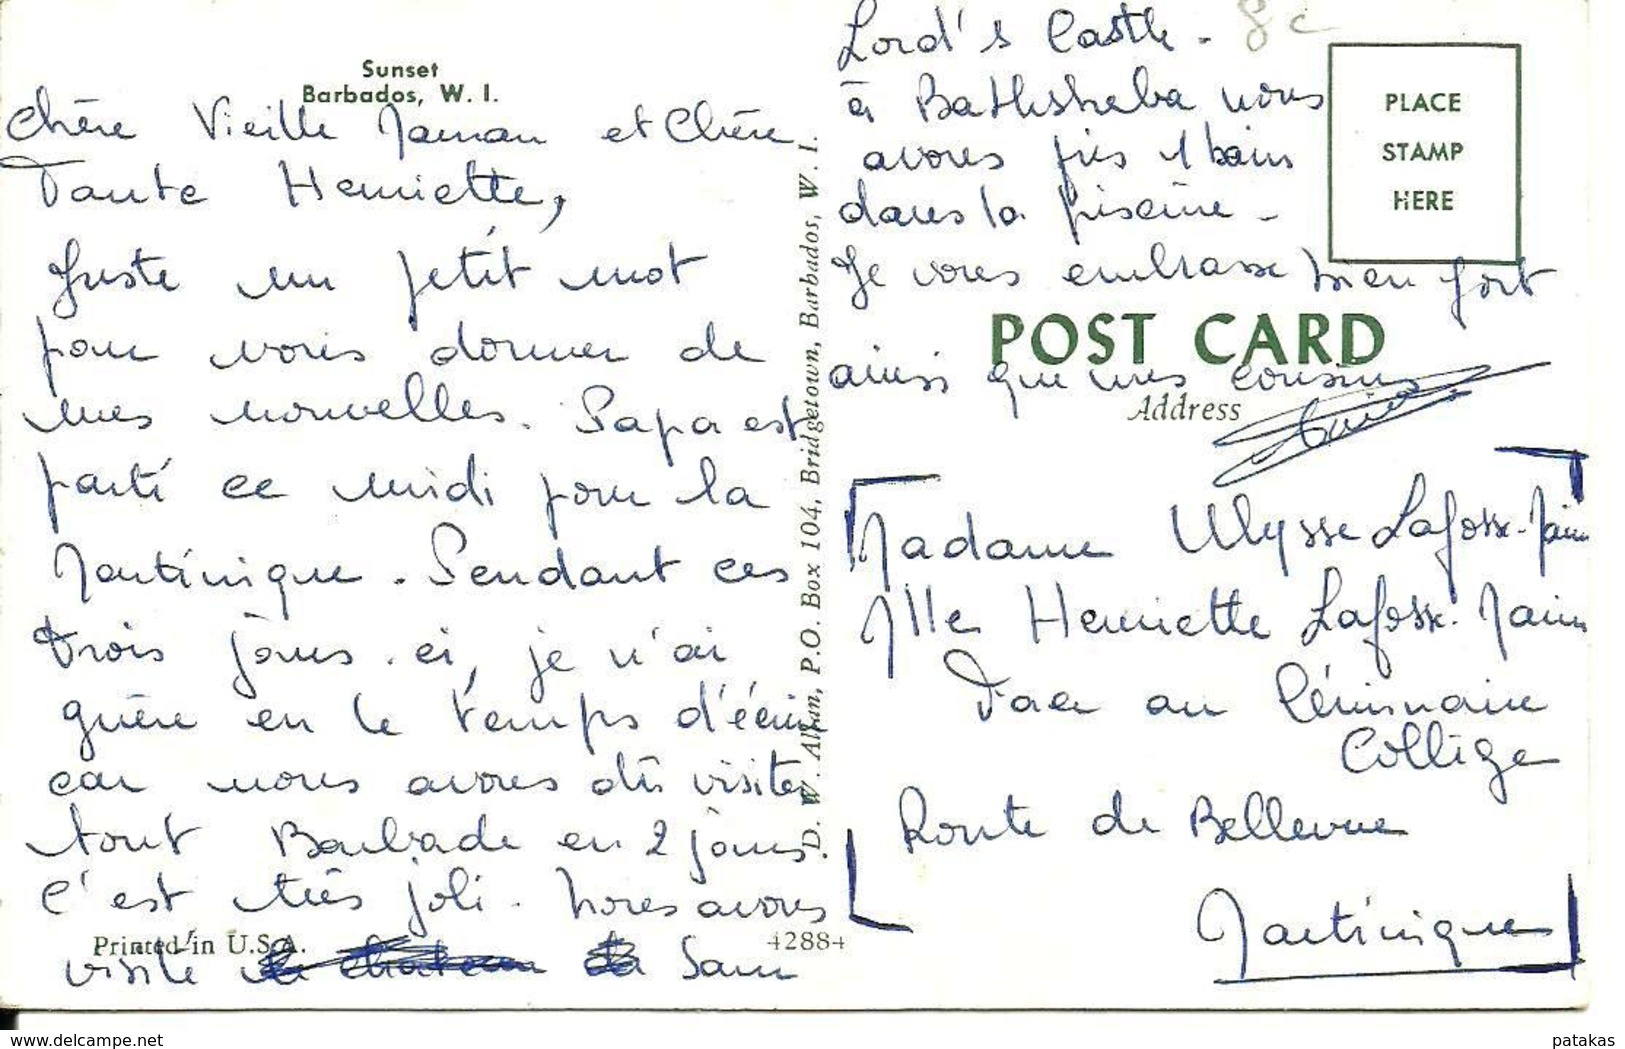 Sunset
Barbados, W. I.
Chère Vieille Maman et Chère
Tante Henriette,
Juste un petit mot
pour vous donner de
mes nouvelles. Papa est
parti ce midi pour la
Martinique. Pendant ces
trois jours ici, je n'ai
guère eu le temps d'écrire
car nous avons dû visiter
tout Barbade en 2 jours.
C'est très joli. Nous avons
visité le chateau de Sam
Printed in U.S.A.
42884
D. W. Allan, P.O. Box 104, Bridgetown, Barbados, W. I.
Lord's Castle -
8c
à Bathsheba nous
avons pris 1 bain
dans la piscine -
Je vous embrasse bien fort
ainsi que mes cousins
PLACE
STAMP
HERE
POST CARD
Address
Madame Ulysse Lafosse-Marin
Mlle Henriette Lafosse-Marin
Face au Séminaire
Collège
Route de Bellevue
Martinique
patakas
www.delcampe.net